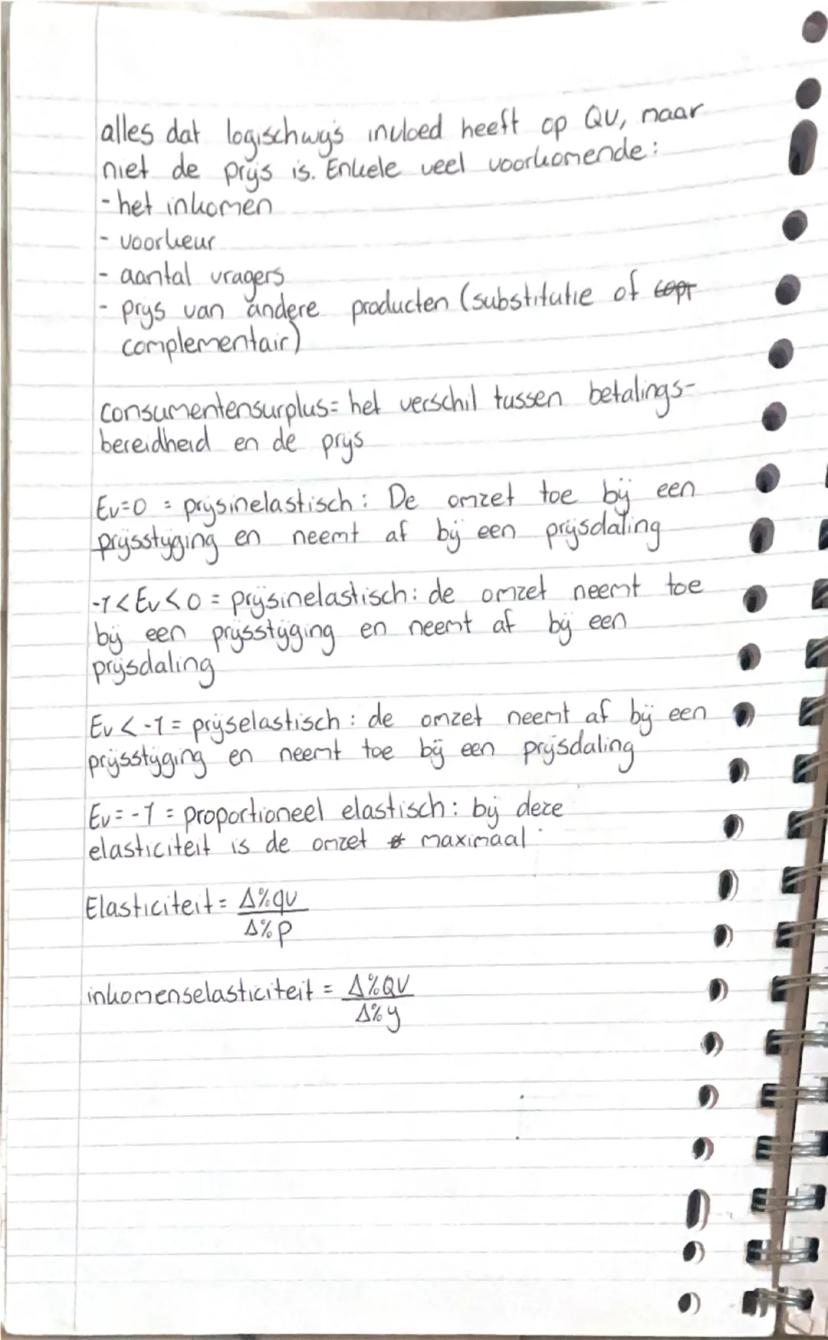 alles dat logischwijs invloed heeft op QV, maar
niet de prijs is. Enkele veel voorkomende:
- het inkomen
- voorkeur
- aantal vragers
- prijs van andere producten (substitutie of copr
complementair)
consumentensurplus= het verschil tussen betalings-
bereidheid en de prijs
Ev=0 = prijsinelastisch: De omzet toe bij een
prijsstijging en neemt af bij een prijsdaling
-1<Ev<0 = prijsinelastisch: de omzet neemt toe
bij een prijsstijging en neemt af bij een
prijsdaling
Ev < -1 = prijselastisch: de omzet neemt af bij een
prijsstijging en neemt toe bij een prijsdaling
Ev = -1 = proportioneel elastisch: bij deze
elasticiteit is de omzet maximaal
Elasticiteit = Δ%qv
Δ%p
inkomenselasticiteit = Δ%QV
Δ%y